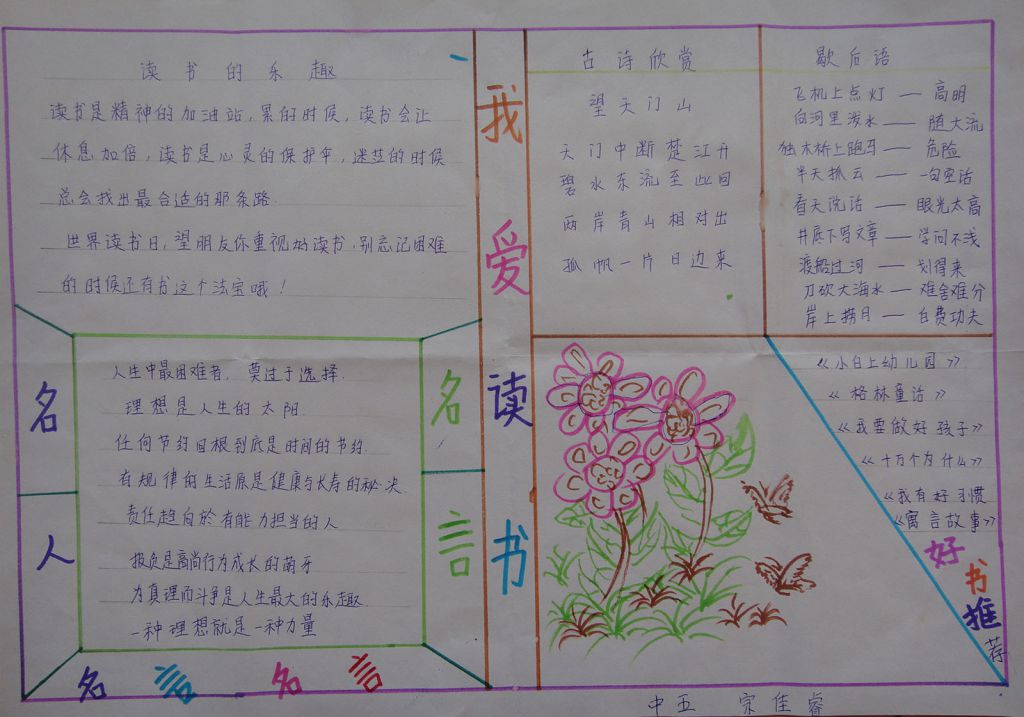 读书的乐趣
读书是精神的加油站，累的时候，读书会让
休息加倍，读书是心灵的保护伞，迷茫的时候
总会找出最合适的那条路．
世界读书日，望朋友你重视的读书，别忘记困难
的时候还有书这个法宝哦！
名人
人生中最困难者，莫过于选择．
理想是人生的太阳
任何节约归根到底是时间的节约．
有规律的生活原是健康与长寿的秘诀
责任趋向於有能力担当的人
报负是高尚行为成长的萌牙
为真理而斗争是人生最大的乐趣．
一种理想就是一种力量
名言
名言名言
我爱读书
古诗欣赏
望天门山
天门中断楚江开
碧水东流至此回
两岸青山相对出
孤帆一片日边来
歇后语
飞机上点灯——高明
向河里泼水——随大流
独木桥上跑马——危险
半天抓云——一句空话
看天说话——眼光太高
井底下写文章——学问不浅
渡船过河——划得来
刀砍大海水——难舍难分
岸上捞月——白费功夫
《小白上幼儿园》
《格林童话》
《我要做好孩子》
《十万个为什么》
《我有好习惯》
《寓言故事》
好书推荐
中五 宗佳睿